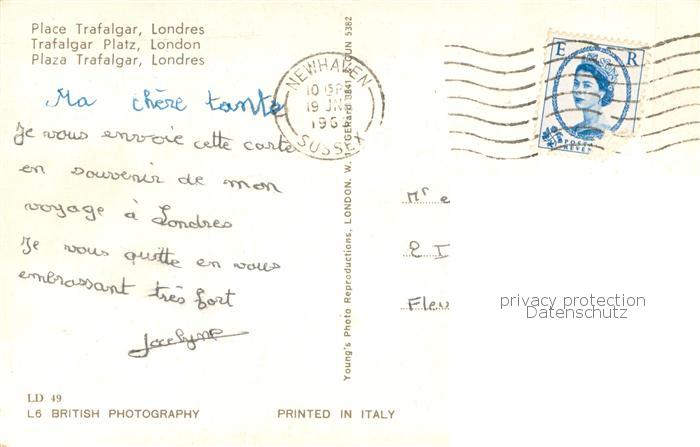 Place Trafalgar, Londres
Trafalgar Platz, London
Plaza Trafalgar, Londres
Ma chère tante
Je vous envoie cette carte
en souvenir de mon
voyage à Londres
Je vous quitte en vous
embrassant très fort
Jocelyne
LD 49
L6 BRITISH PHOTOGRAPHY
PRINTED IN ITALY
Young's Photo Reproductions, LONDON, W.
GERrard 3841
GUN 5382
NEWHAVEN
19 JNE
196
SUSSEX
E R
POSTAGE
REVENUE
Mr e
2 I
Fleu
privacy protection
Datenschutz